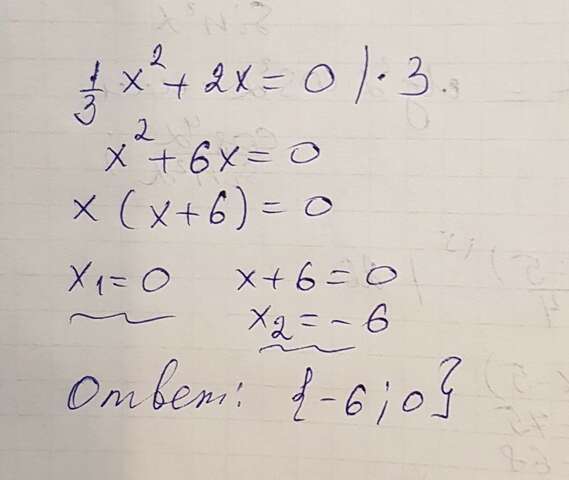 1/3 x² + 2x = 0 | · 3
x² + 6x = 0
x (x + 6) = 0
x₁ = 0 x + 6 = 0
x₂ = - 6
Ответ: {-6; 0}